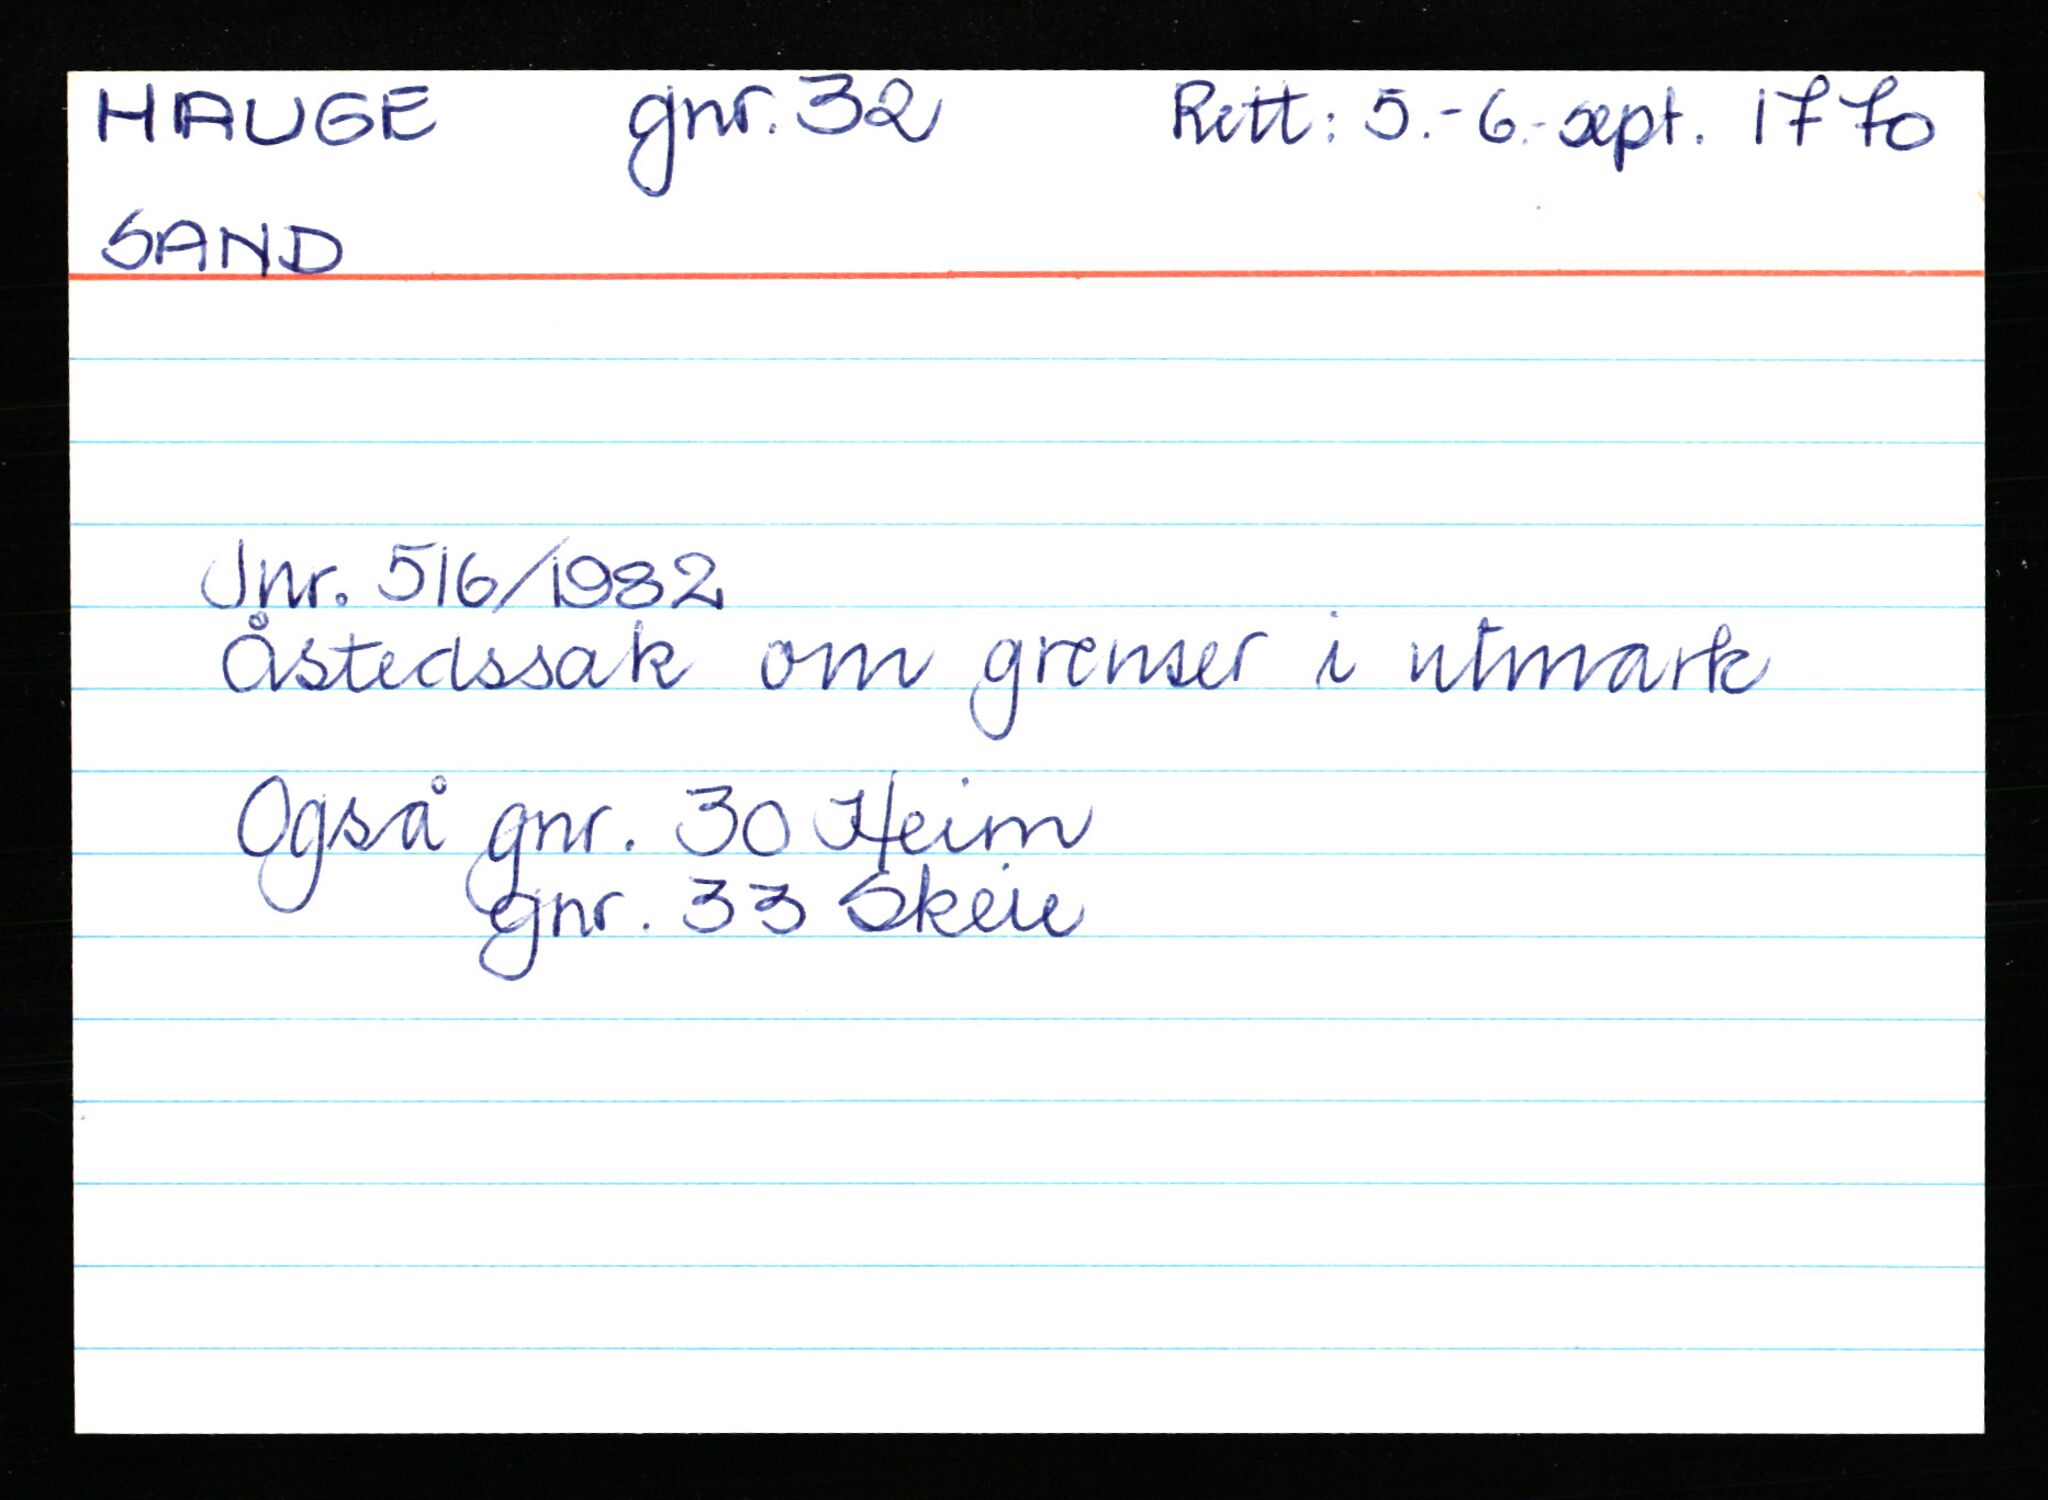 HAUGE gnr. 32 Rett: 5.-6.-sept. 1770
SAND
Jnr. 516/1982
Åstedssak om grenser i utmark
Også gnr. 30 Heim
gnr. 33 Skeie